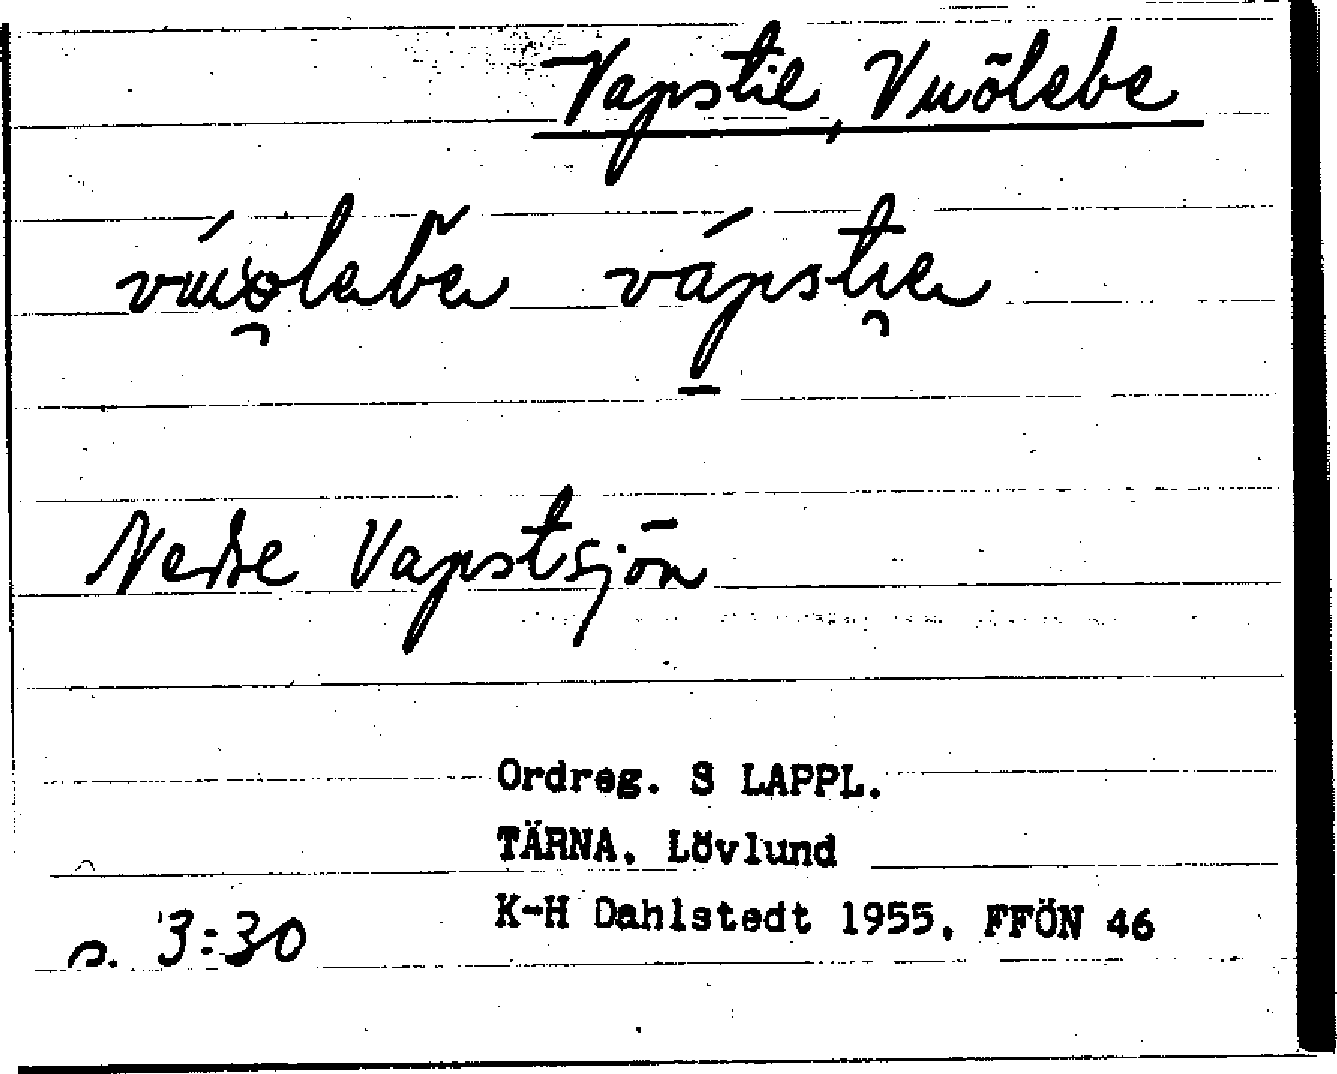 Vapstie, Vuölebe
vúolebe vápstie
Nedre Vapstsjön
Ordreg. S LAPPL.
TÄRNA. Lövlund
K-H Dahlstedt 1955. FFÖN 46
s. 3:30